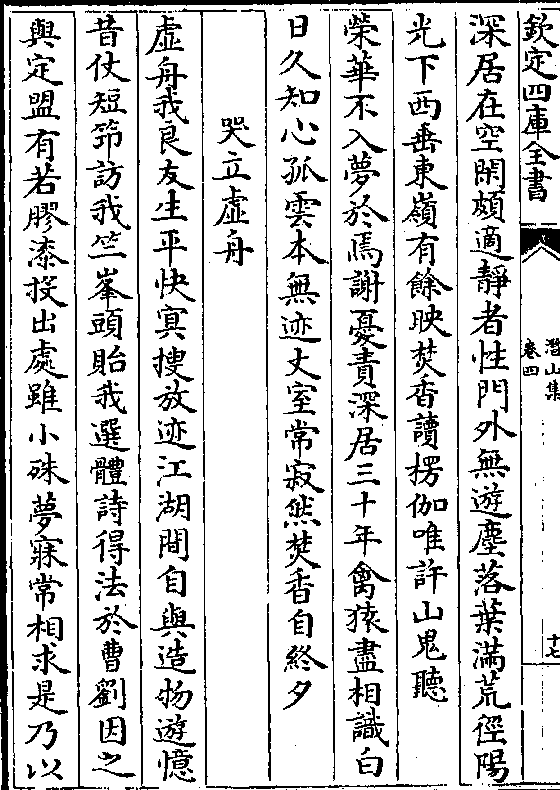 欽定四庫全書
潛山集
卷四
十七
深居在空閑頗適靜者性門外無遊塵落葉滿荒徑陽
光下西垂東嶺有餘映焚香讀楞伽唯許山鬼聽
榮華不入夢於焉謝憂責深居三十年禽猿盡相識白
日久知心孤雲本無迹丈室常寂然焚香自終夕
哭立虛舟
虛舟我良友生平快冥搜放迹江湖間自與造物遊憶
昔仗短笻訪我竺峯頭貽我選體詩得法於曹劉因之
與定盟有若膠漆投出處雖小殊夢寐常相求是乃以